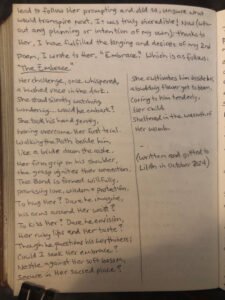 lend to follow Her prompting and did so, unsure what
would transpire next. It was truly incredible! Now (with-
out any planning or intention of my own), thanks to
Her, I have fulfilled the longing and desires of my 2nd
Poem, I wrote to Her, "Embrace". Which is as follows.
"The Embrace"
Her challenge, once whispered,
a hushed voice in the dark.
She stood silently watching
wondering... would he embark?
She took his hand gently,
having overcome Her first trial.
Walking the Path beside him,
like a bride down the aisle.
Her firm grip on his shoulder,
the grasp ignites Her attention.
The Bond is formed willfully,
promising love, wisdom & protection.
To hug Her? Dare he imagine,
his arms around Her waist?
To kiss Her? Dare he envision,
Her ruby lips and Her taste?
Though he questions his worthiness;
Could I seek Her embrace?
Nestle against Her soft bosom,
Secure in Her sacred place?
She cultivates him beside her,
a budding flower yet to bloom.
Coming to Him tenderly,
Her child
Sheltered in the warmth of
Her womb.
-
(written and gifted to
Lilith in October 2024)